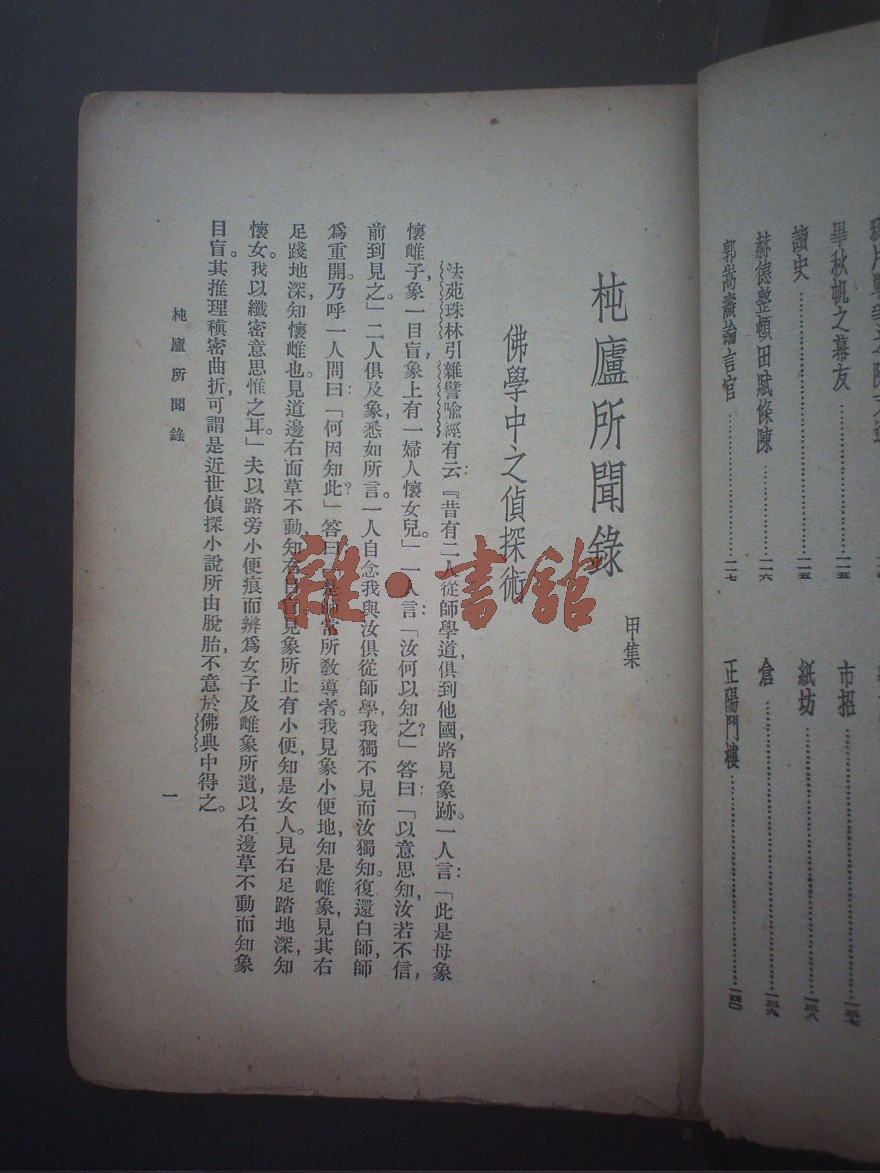 畢秋帆之幕友……一一五
讀史……一一五
赫德整頓田賦條陳……一一六
郭嵩燾論言官……一一七
市招……一三七
紙坊……一三八
倉……一三九
正陽門樓……一四〇
杶廬所聞錄
甲集
佛學中之偵探術
法苑珠林引雜譬喻經有云：『昔有二人從師學道俱到他國路見象跡。一人言：「此是母象
懷雌子，象一目盲象上有一婦人懷女兒。」一人言：「汝何以知之？」答曰：「以意思知，汝若不信，
前到見之。」二人俱及象，悉如所言。一人自念我與汝俱從師學，我獨不見而汝獨知。復還白師，師
爲重開。乃呼一人問曰：「何因知此？」答曰：「是師常所教導者。我見象小便地，知是雌象，見其右
足踐地深，知懷雌也。見道邊右面草不動，知右目盲。見象所止有小便，知是女人。見右足踏地深，知
懷女。我以纖密意思惟之耳。」夫以路旁小便痕而辨爲女子及雌象所遺，以右邊草不動而知象
目盲。其推理縝密曲折，可謂是近世偵探小說所由脫胎，不意於佛典中得之。
杶廬所聞錄
一
雜·書館